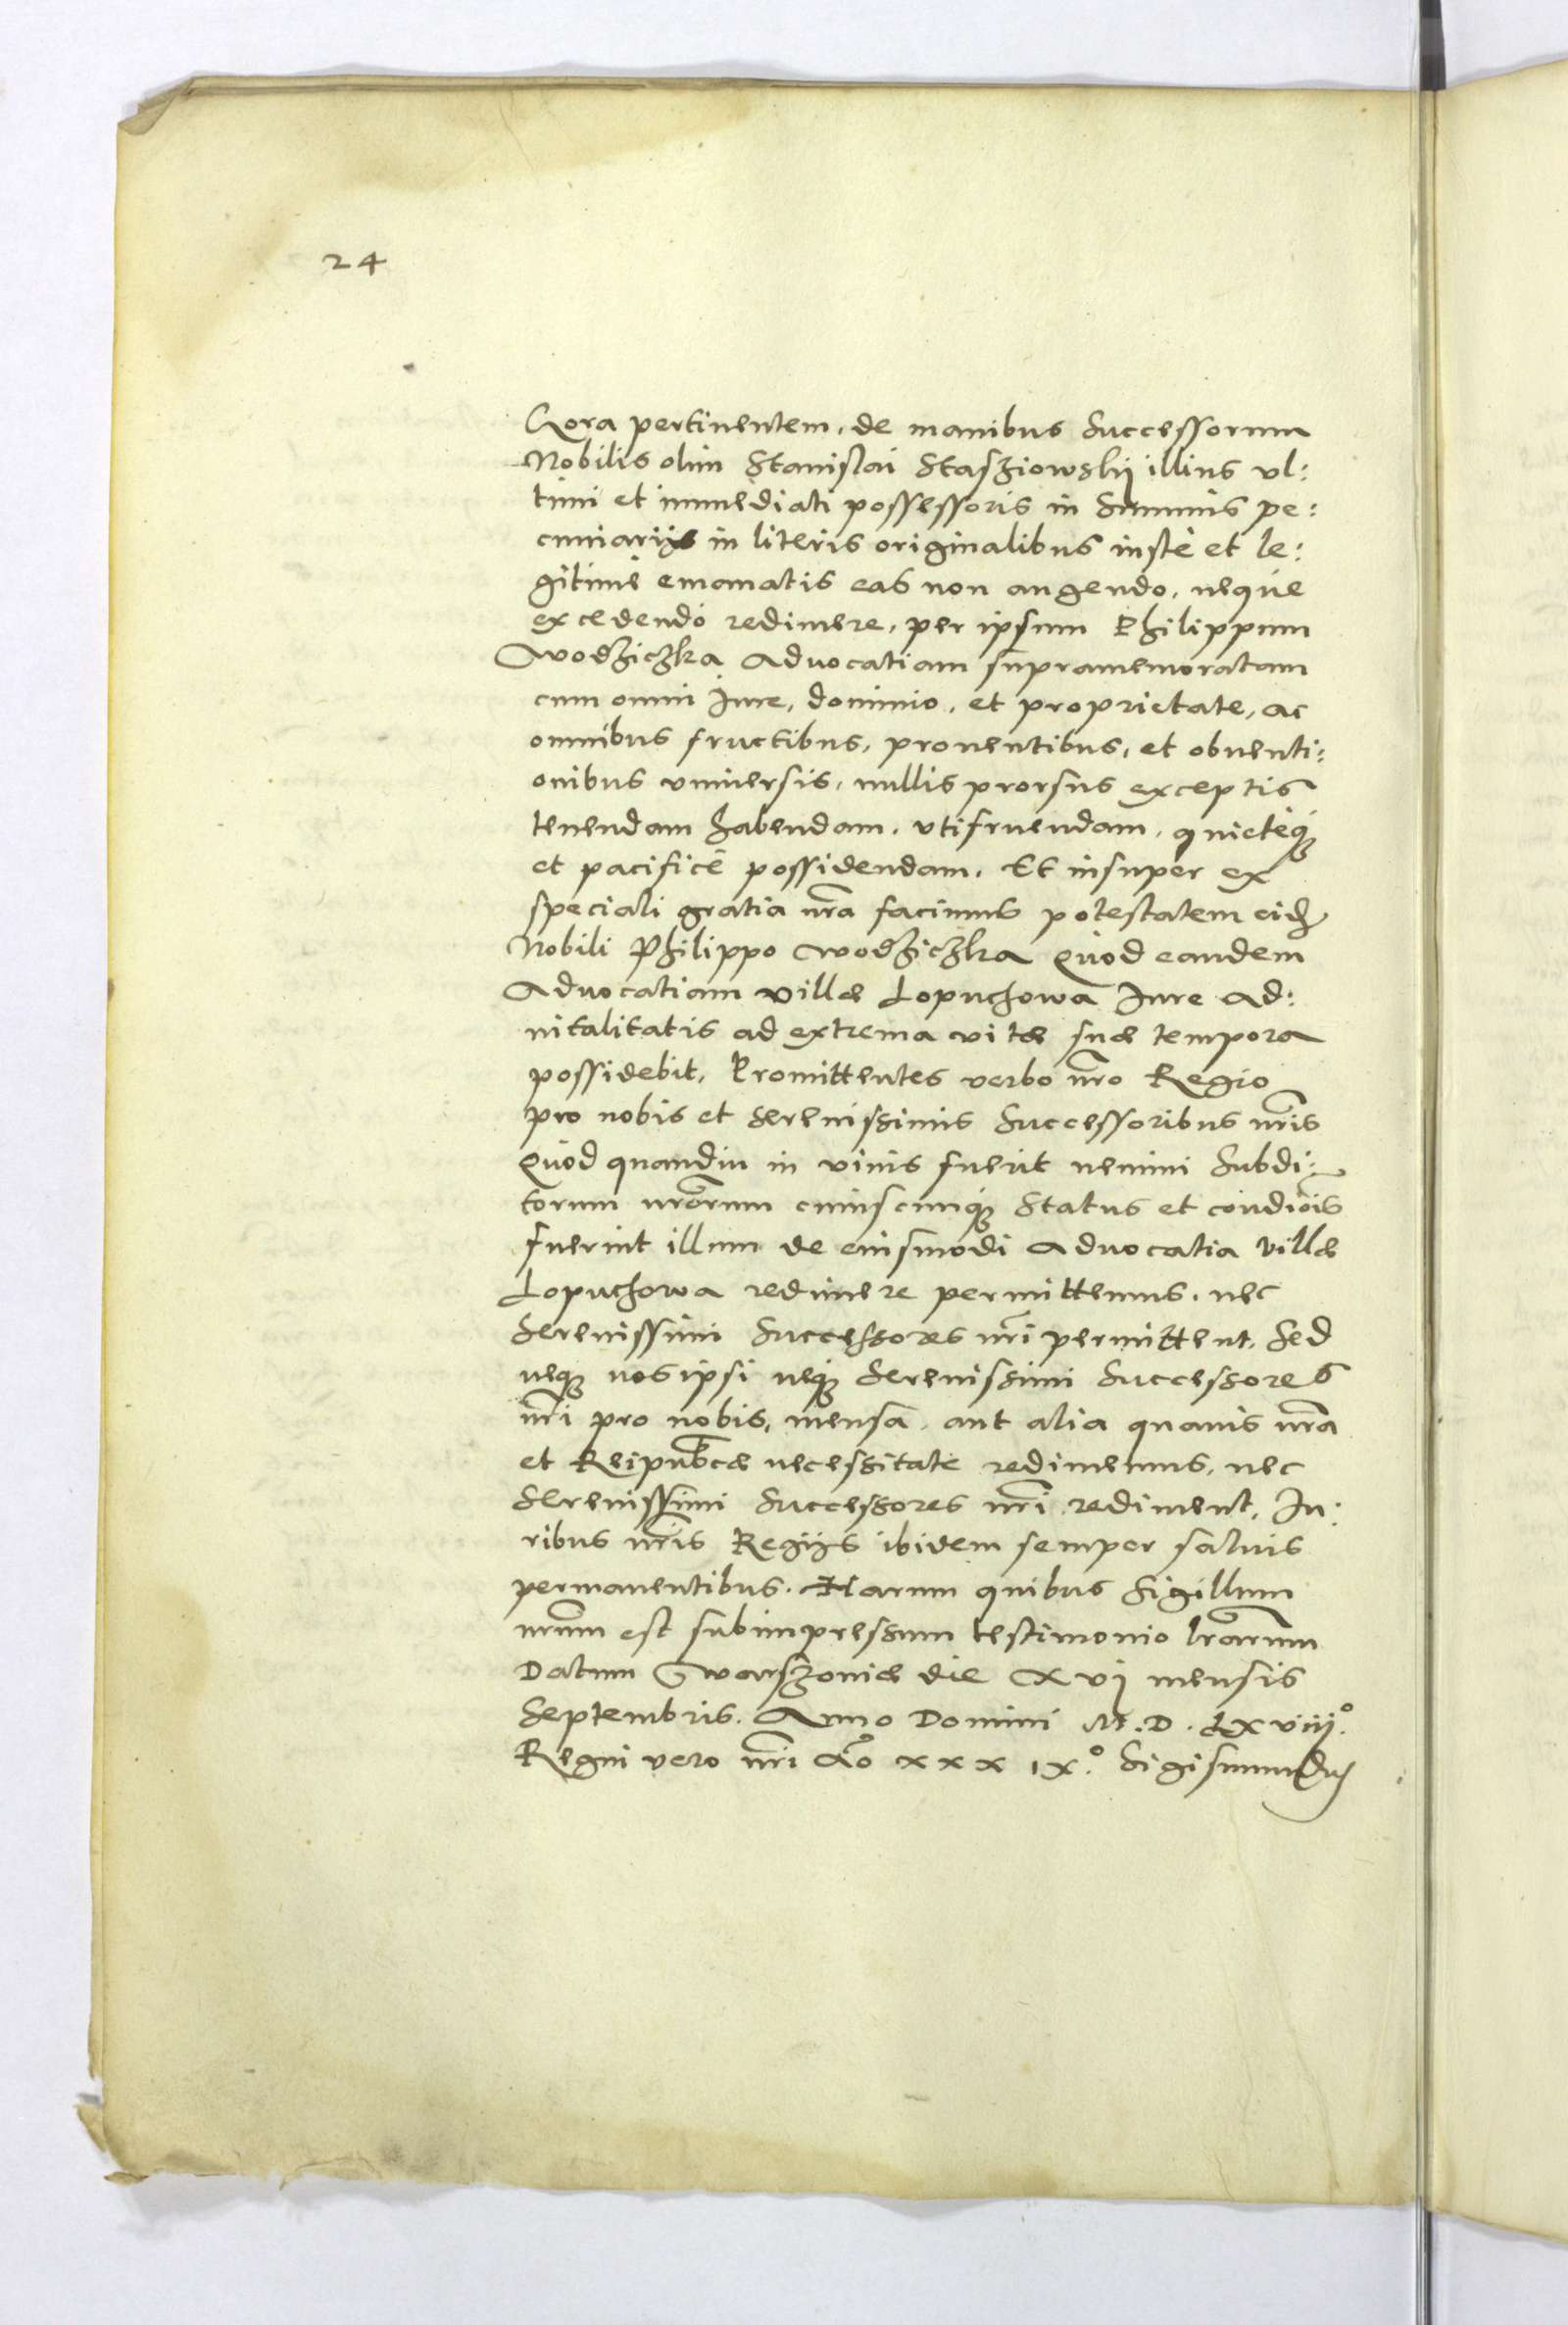 24
Gora pertinentem, de manibus Successorum
Nobilis olim Stanislai Stasziowskij illius vl:
timi et immediati possessoris in Summis pe:
cuniarijs in literis originalibus iustè et le:
gitimè emanatis eas non augendo, neque
excedendo redimere, per ipsum Philippum
Wodziczka Aduocatiam supramemoratam
cum omni Iure, dominio, et proprietate, ac
omnibus fructibus, prouentibus, et obuenti:
onibus vniuersis, nullis prorsus exceptis
tenendam habendam, vtifruendam, quietèq;
et pacificè possidendam. Et insuper ex
speciali gratia nr̃a facimus potestatem eid.
Nobili Philippo Wodziczka Quod eandem
Aduocatiam villæ Lopuchowa Iure Ad:
uitalitatis ad extrema vitæ suæ tempora
possidebit, Promittentes verbo nr̃o Regio
pro nobis et Serenissimis Successoribus nr̃is
Quod quandiu in viuis fuerit nemini Subdi:
torum nr̃orum cuiuscunq; Status et condiõis
fuerint illum de eiusmodi Aduocatia villæ
Lopuchowa redimere permittemus, nec
Serenissimi Successores nr̃i permittent, Sed
neq; nos ipsi neq; Serenissimi Successores
nr̃i pro nobis, mensa, aut alia quauis nr̃a
et Reipub̃cæ necessitate redimemus, nec
Serenissimi Successores nr̃i rediment, Iu:
ribus nr̃is Regijs ibidem semper saluis
permanentibus. Harum quibus Sigillum
nr̃um est subimpressum testimonio lr̃arum
Datum Warszouiæ die XVI mensis
Septembris. Anno Domini M.D.LXVIII.º
Regni vero nr̃i Aõ XXXIX.º Sigismundus